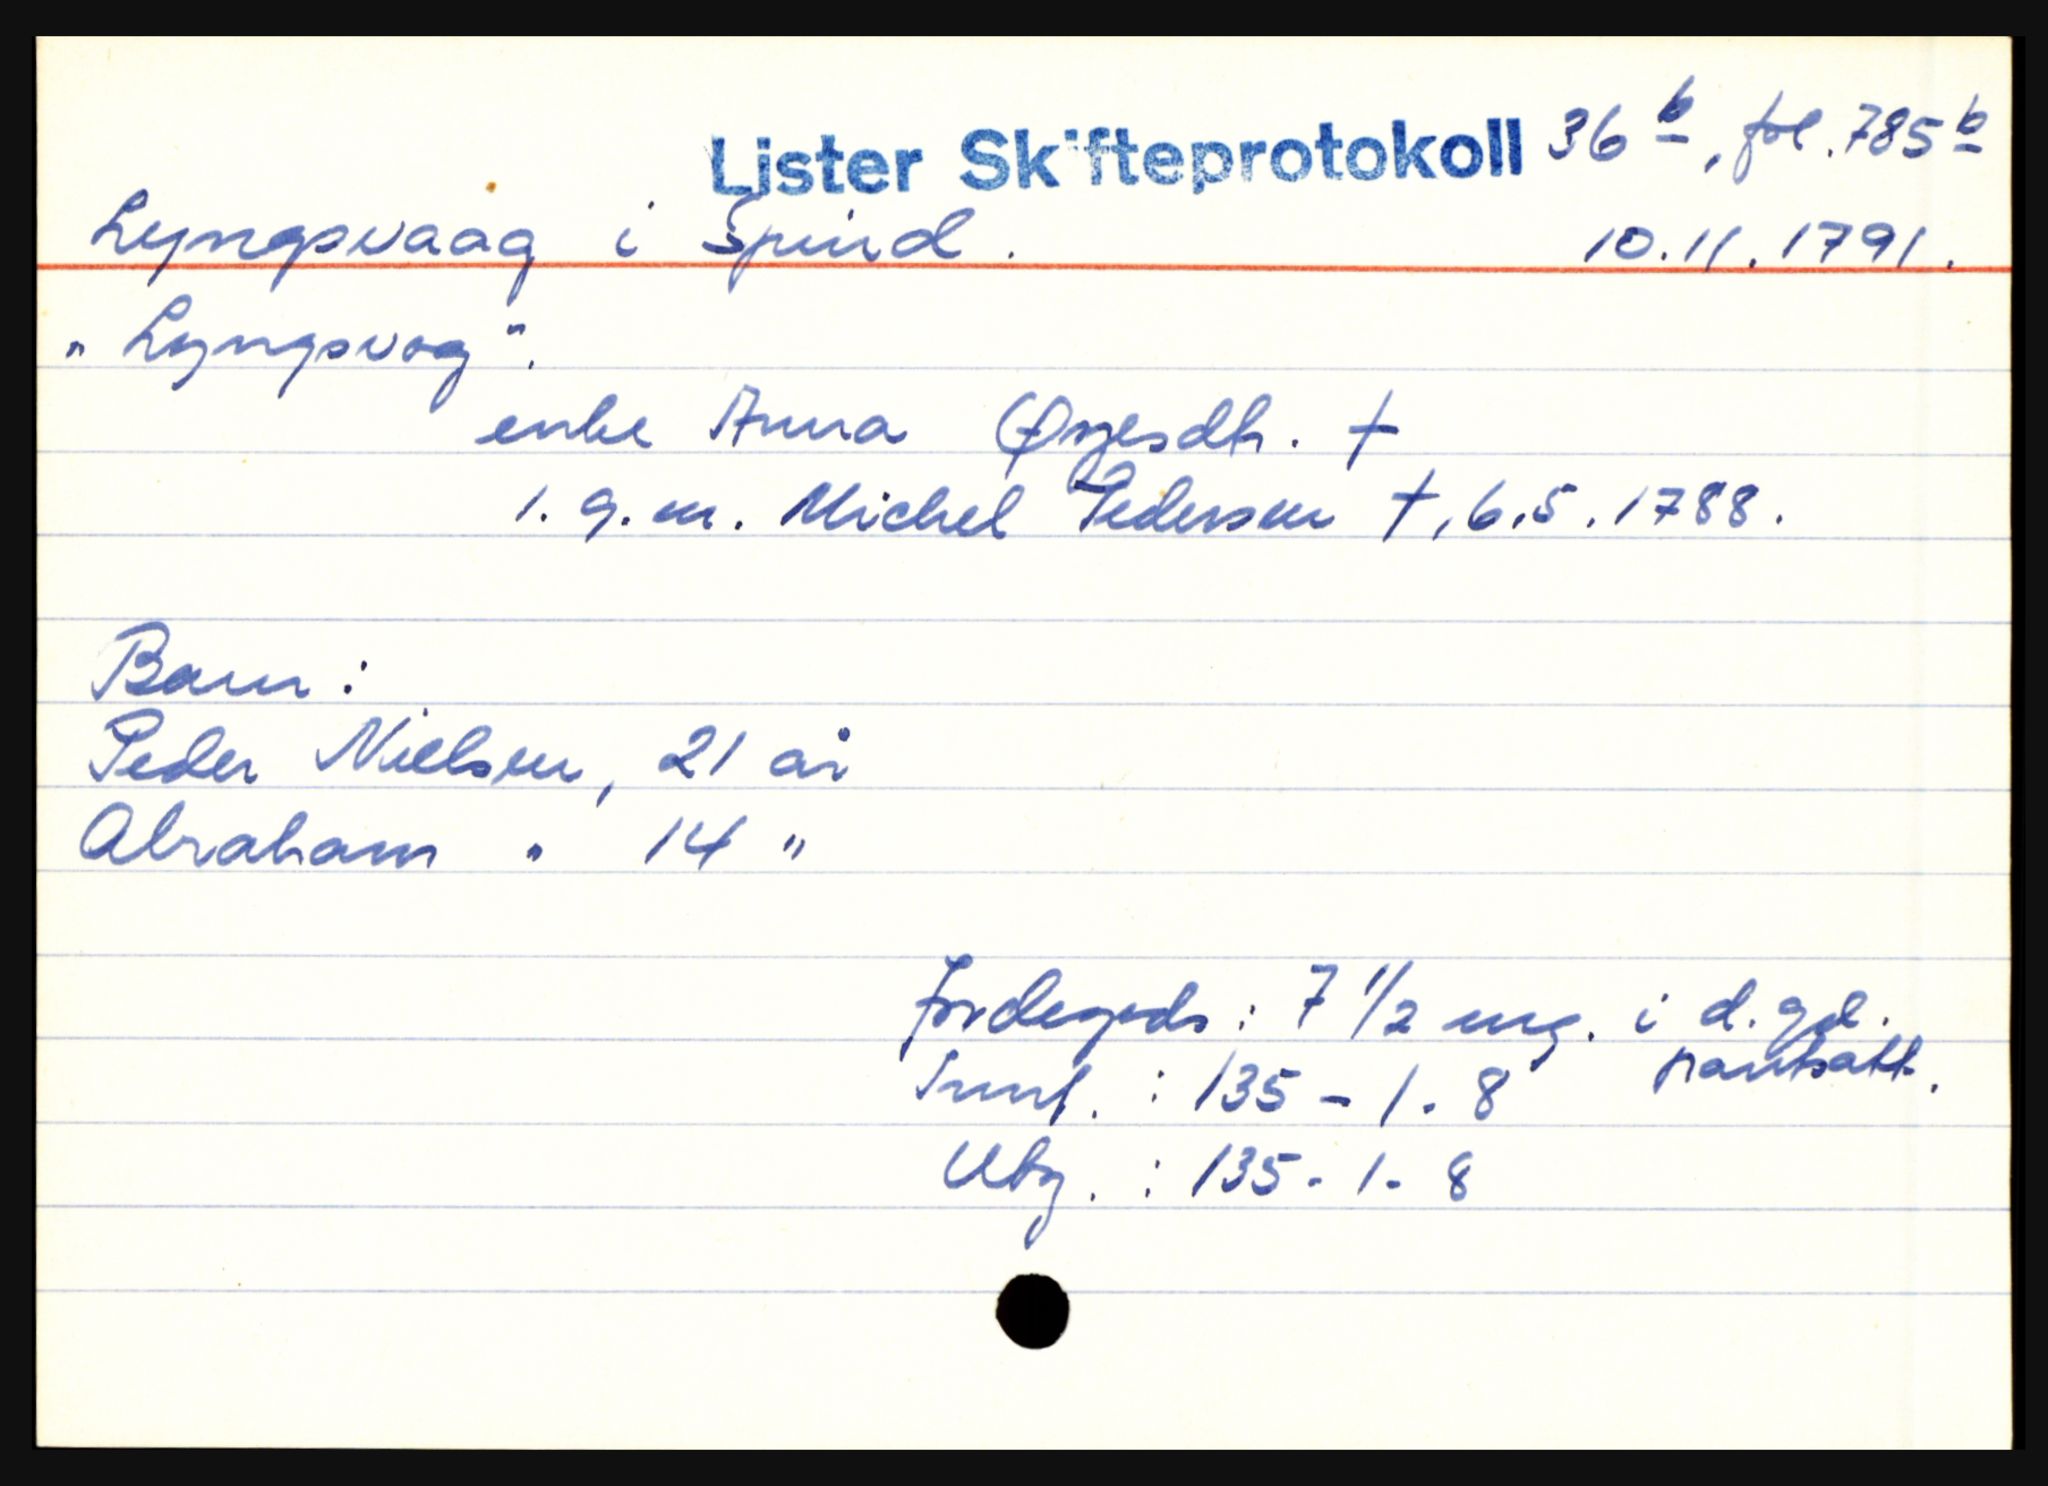 Lister Skifteprotokoll 36 b, fol. 785 b
Lyngsvaag i Spind. 10.11.1791.
„Lyngsvog".
enke Anna Øyesdtr. †
1. g. m. Michel Pedersen †, 6.5.1788.
Barn:
Peder Nielsen, 21 år
Abraham " 14 "
Jordegods: 7 1/2 mrg. i d. gd.
pantsatt.
Innt. : 135 - 1 - 8
Utg. : 135 - 1 - 8